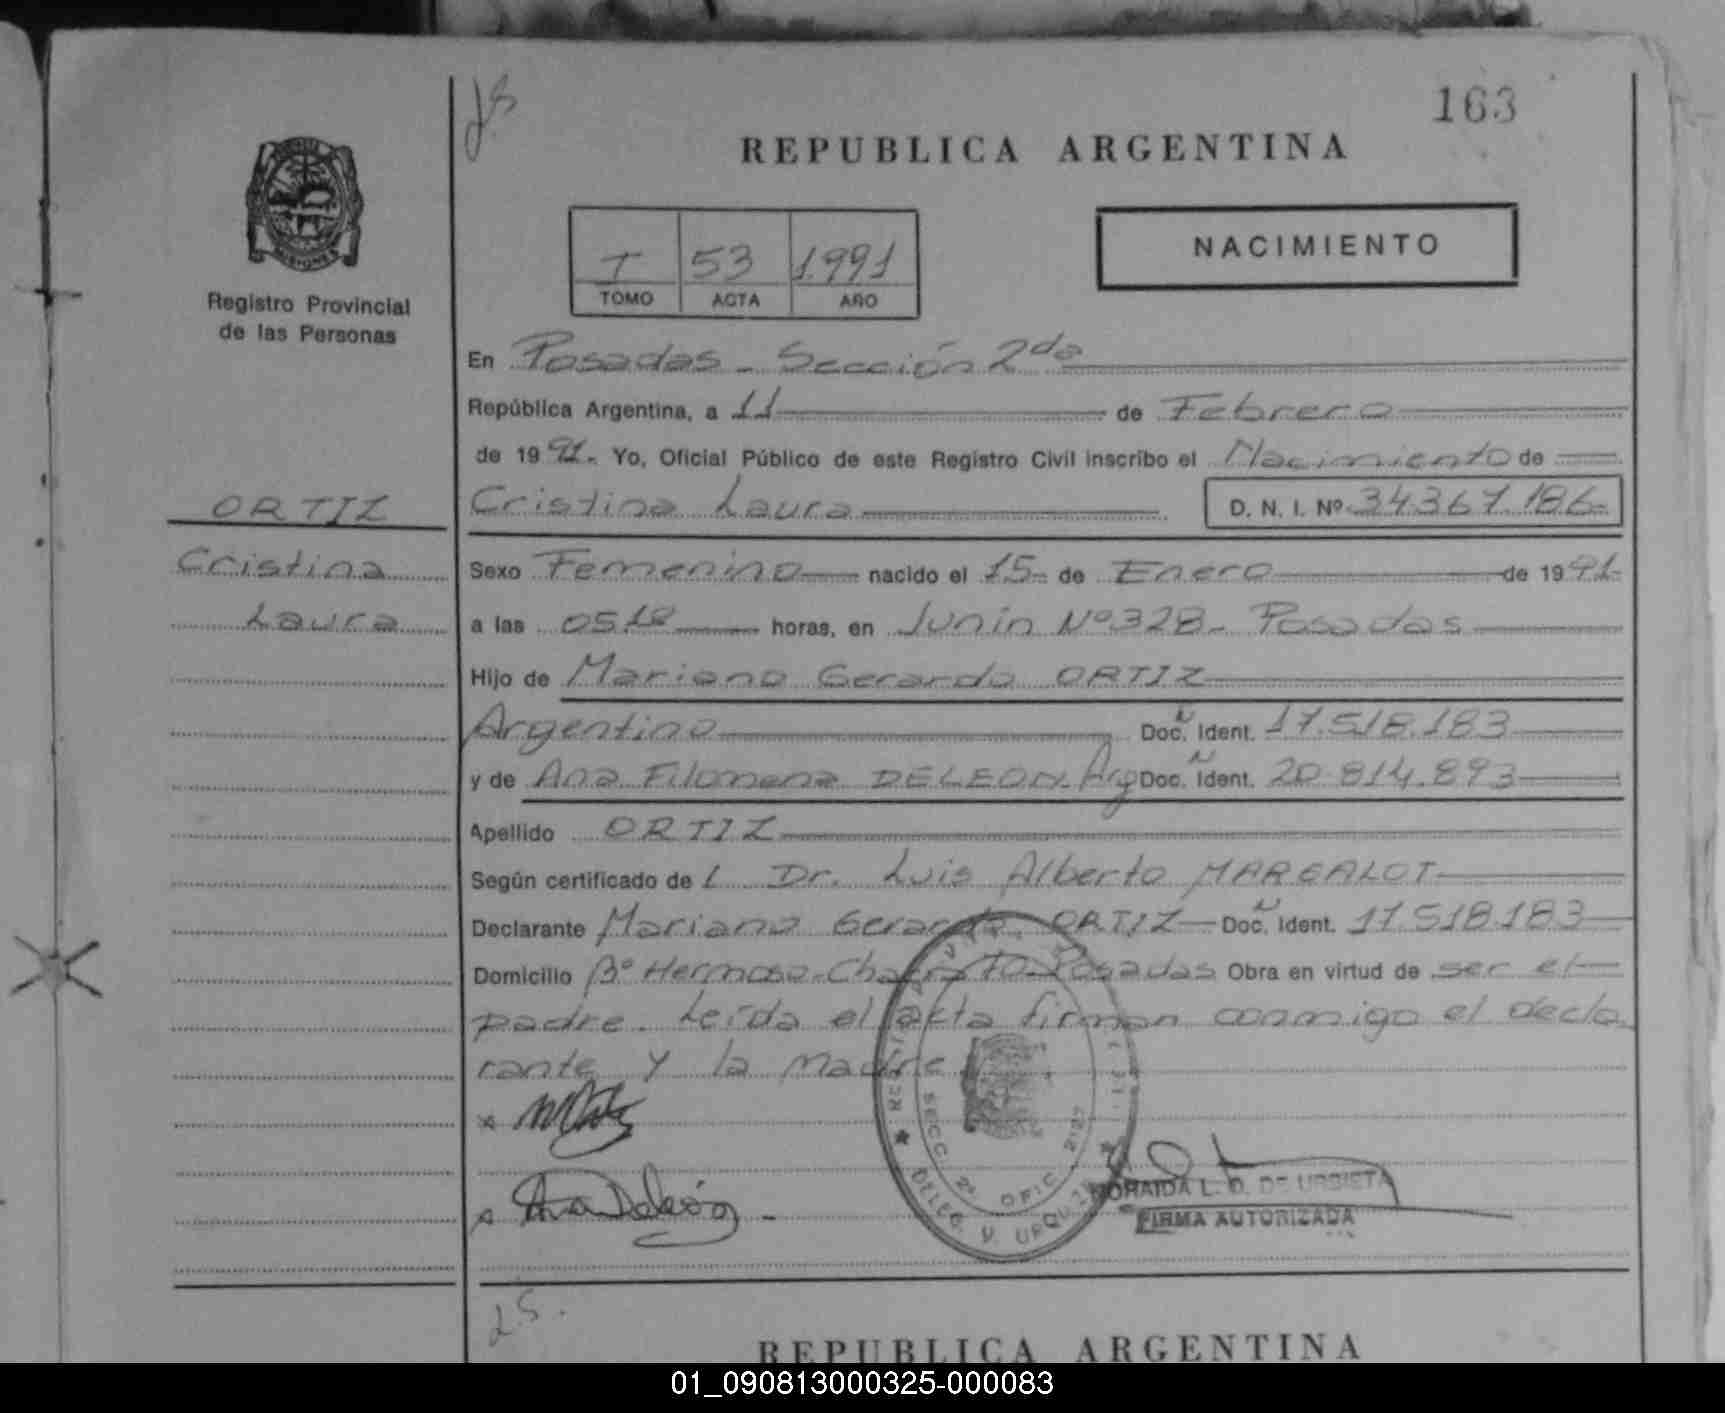 163
REPUBLICA ARGENTINA
MISIONES
Registro Provincial
de las Personas
T 53 1991
TOMO ACTA AÑO
NACIMIENTO
En Posadas - Sección 2da
República Argentina, a 11 de Febrero
de 1991. Yo, Oficial Público de este Registro Civil inscribo el Nacimiento de
ORTIZ
Cristina Laura D. N. I. Nº 34.367.186
Cristina
Laura
Sexo Femenino nacido el 15 de Enero de 1991
a las 05.10 horas, en Junín Nº 328 - Posadas
Hijo de Mariano Gerardo ORTIZ
Argentino Doc. N Ident. 17.518.183
y de Ana Filomena DELEON. Arg Doc. N Ident. 20.814.893
Apellido ORTIZ
Según certificado de l Dr. Luis Alberto MARGALOT
Declarante Mariano Gerardo ORTIZ Doc. N Ident. 17.518.183
Domicilio Bº Hermoso - Chacra Posadas Obra en virtud de ser el
padre. Leída el acta firman conmigo el decla
rante y la madre
Ana Deleón
SECC. 2ª OFIC. 2127
DELEG. V. URQUIZA
L. D. DE URBIETA
FIRMA AUTORIZADA
REPUBLICA ARGENTINA
01_090813000325-000083